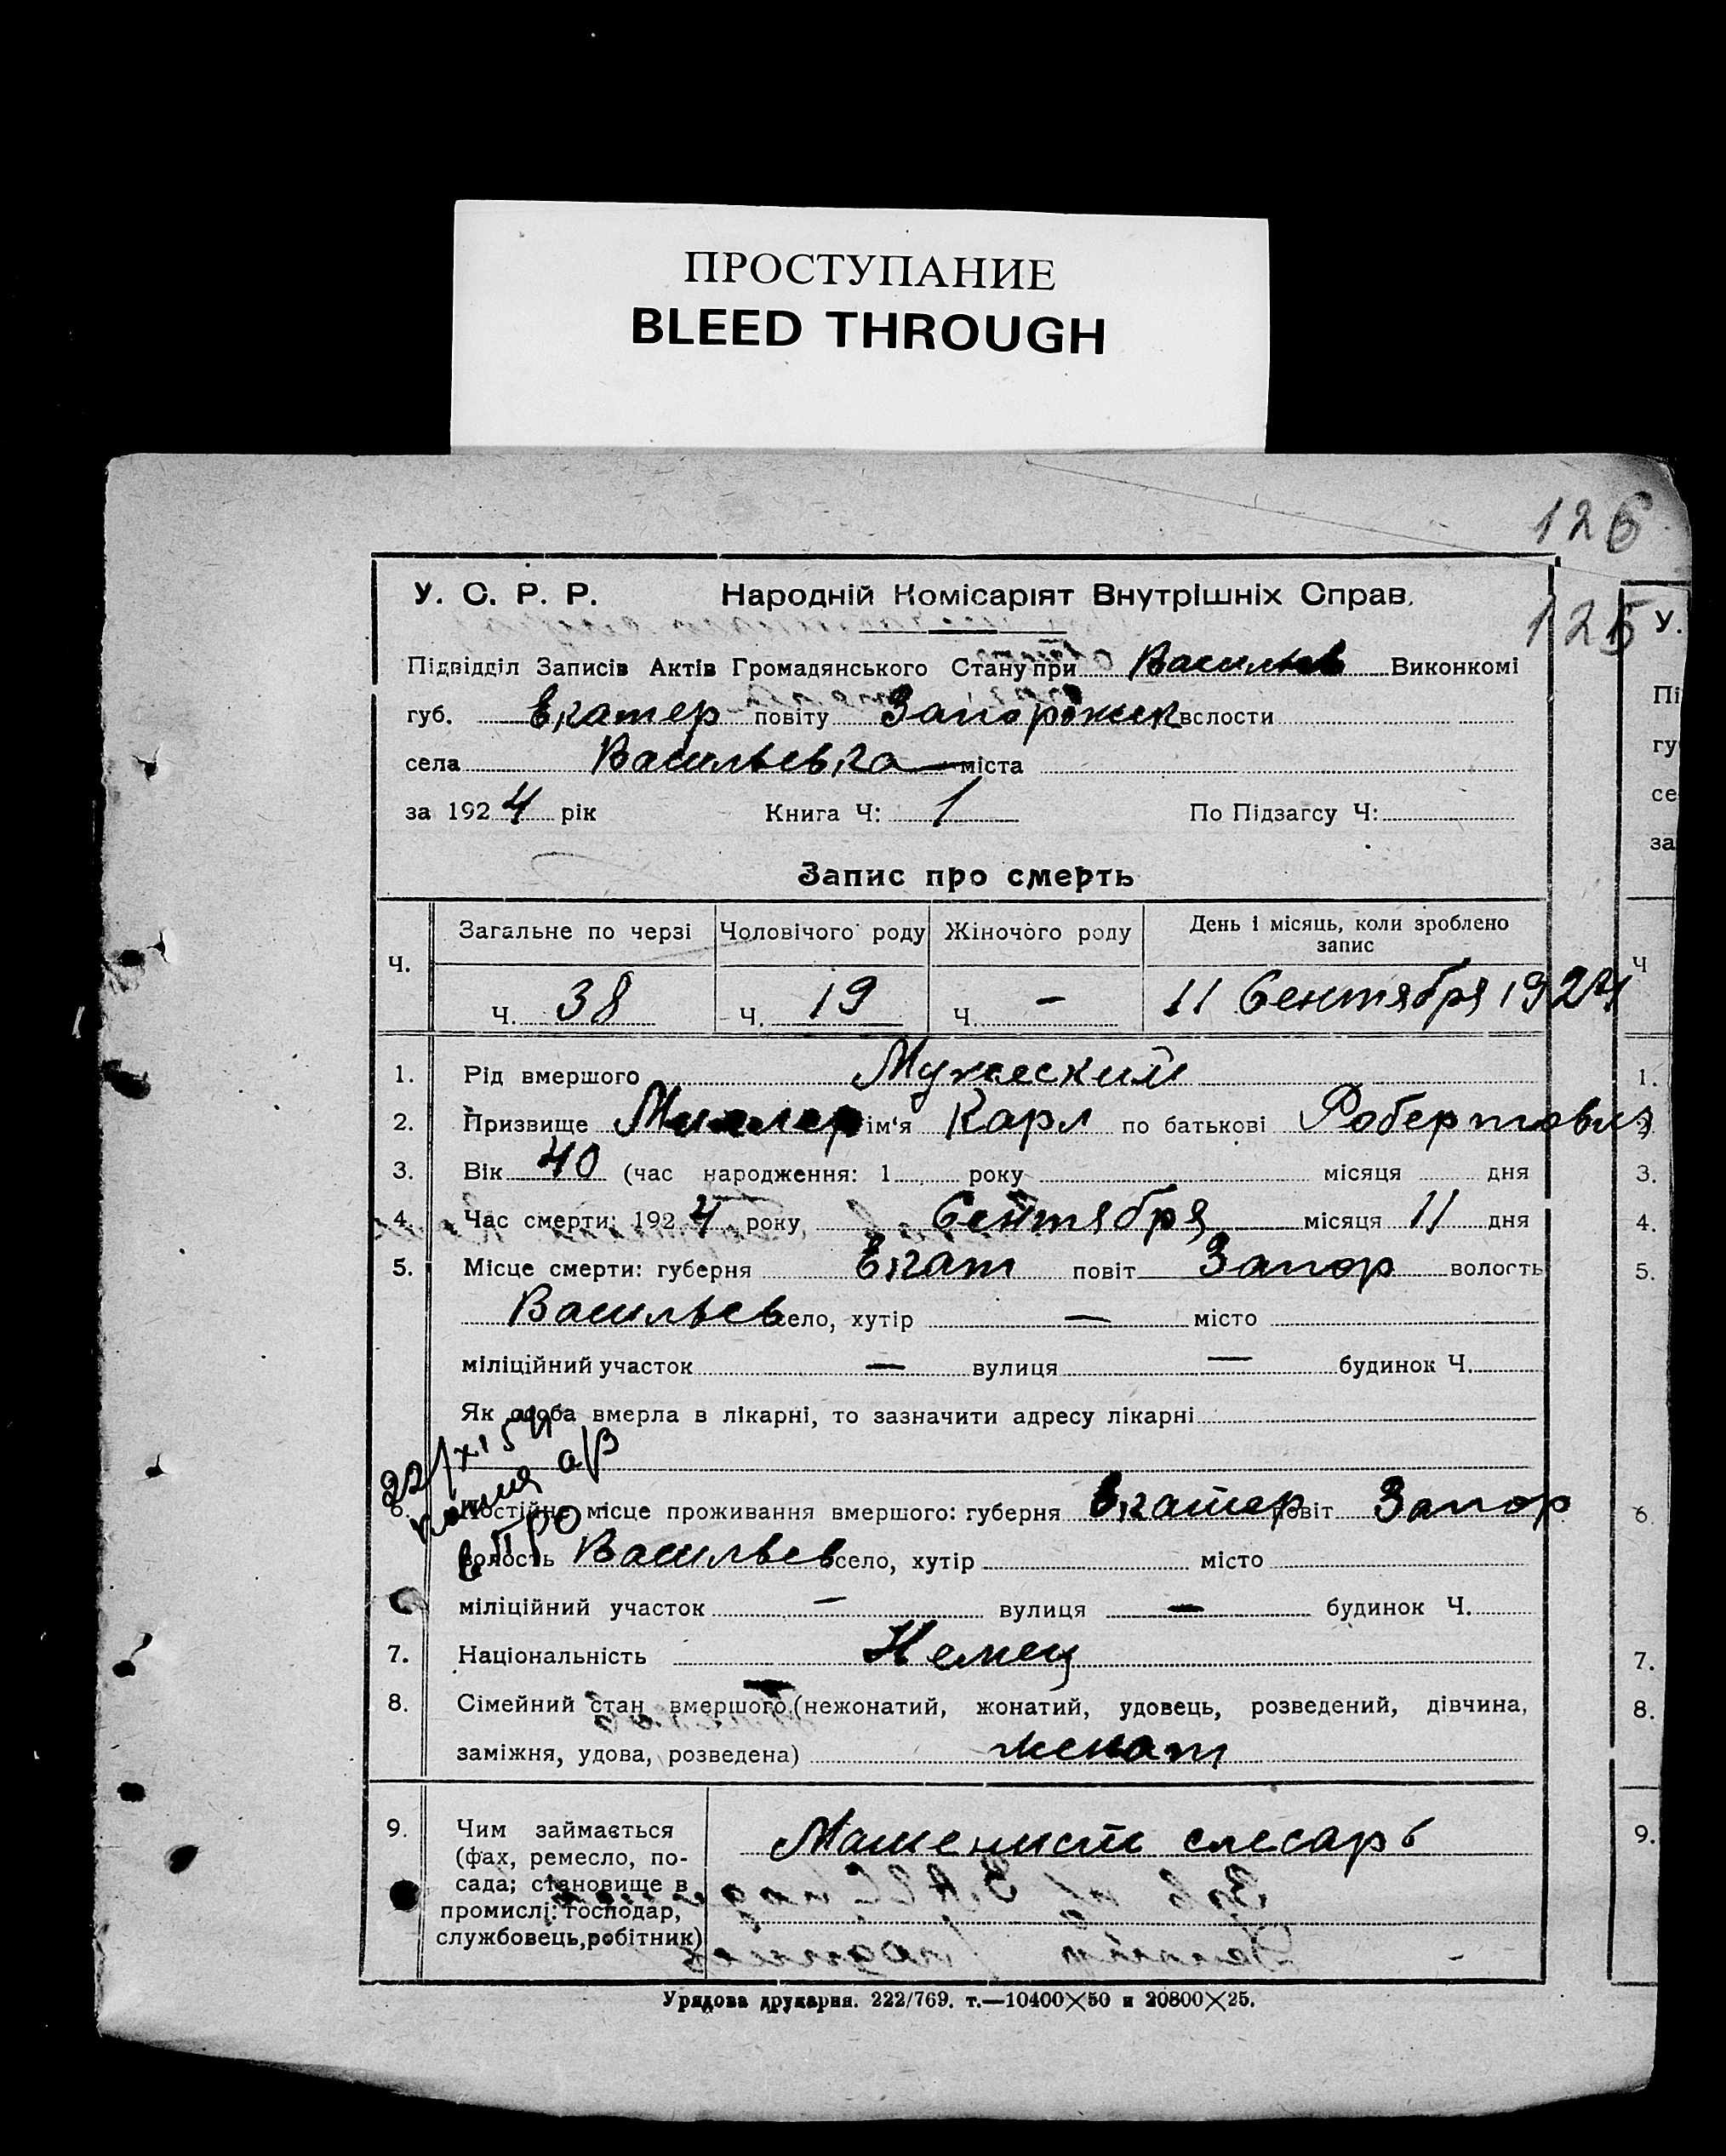 ПРОСТУПАНИЕ
BLEED THROUGH
126
125
У. С. Р. Р. Народній Комісаріят Внутрішніх Справ.
Підвідділ Записів Актів Громадянського Стану при Васильев Виконкомі
губ. Екатер повіту Запорожск вслости
села Васильевка міста
за 1924 рік Книга Ч: 1 По Підзагсу Ч:
Запис про смерть
Ч. Загальне по черзі Чоловічого роду Жіночого роду День і місяць, коли зроблено запис
Ч. 38 Ч. 19 Ч. — 11 Сентября 1924
1. Рід вмершого Мужеский
2. Призвище Миллер ім'я Карл по батькові Робертович
3. Вік 40 (час народження: 1 року місяця дня
4. Час смерти: 1924 року Сентября місяця 11 дня
5. Місце смерти: губерня Екат повіт Запор волость
Васильев село, хутір — місто
міліційний участок — вулиця — будинок Ч.
Як особа вмерла в лікарні, то зазначити адресу лікарні
22/XI 5
6. Постійне місце проживання вмершого: губерня Екатер повіт Запор
волость Васильев село, хутір місто
міліційний участок — вулиця — будинок Ч.
7. Національність Немец
8. Сімейний стан вмершого (нежонатий, жонатий, удовець, розведений, дівчина,
заміжня, удова, розведена) женат
9. Чим займається Машенист слесарь
(фах, ремесло, по-
сада; становище в
промислі: господар,
службовець, робітник)
Урядова друкарня. 222/769. т.—10400×50 и 20800×25.
У.
Пі
гу
се
за
Ч
1.
2.
3.
4.
5.
6.
7.
8.
9.